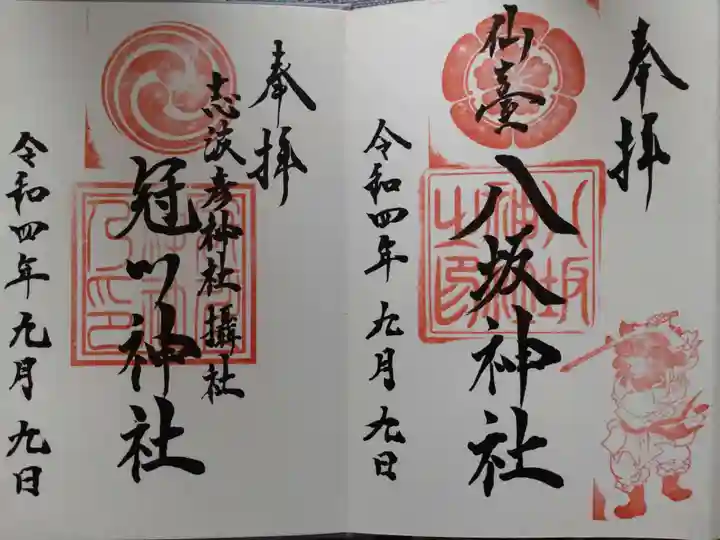 奉拝
仙臺
八坂神社
令和四年九月九日
八坂
神社
之印
奉拝
志波彦神社攝社
冠川神社
令和四年九月九日